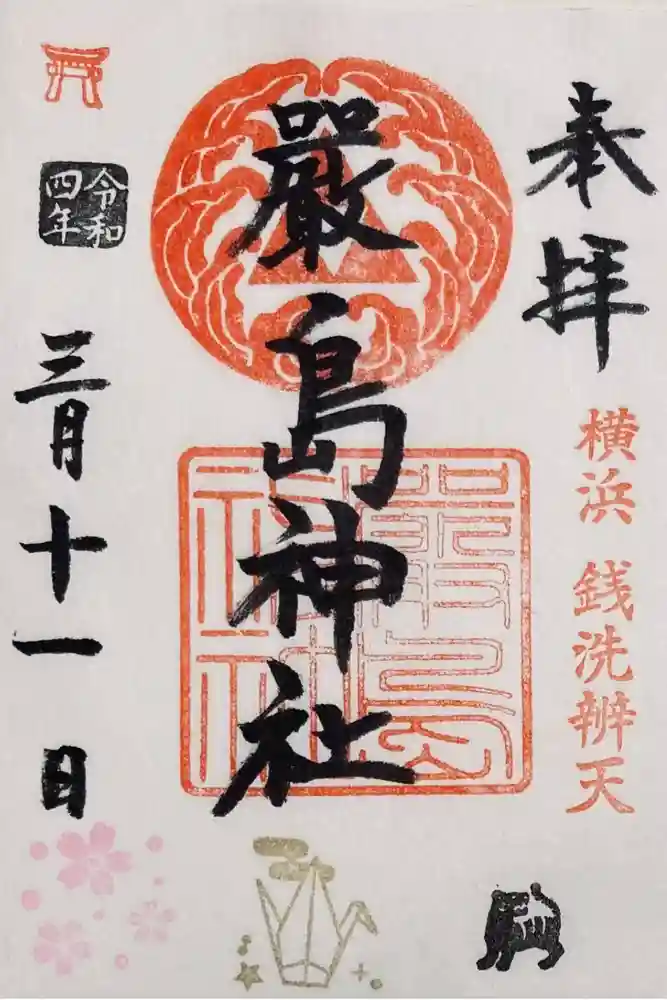 奉拝
横浜 銭洗辨天
嚴島神社
嚴島神社
令和四年
三月十一日